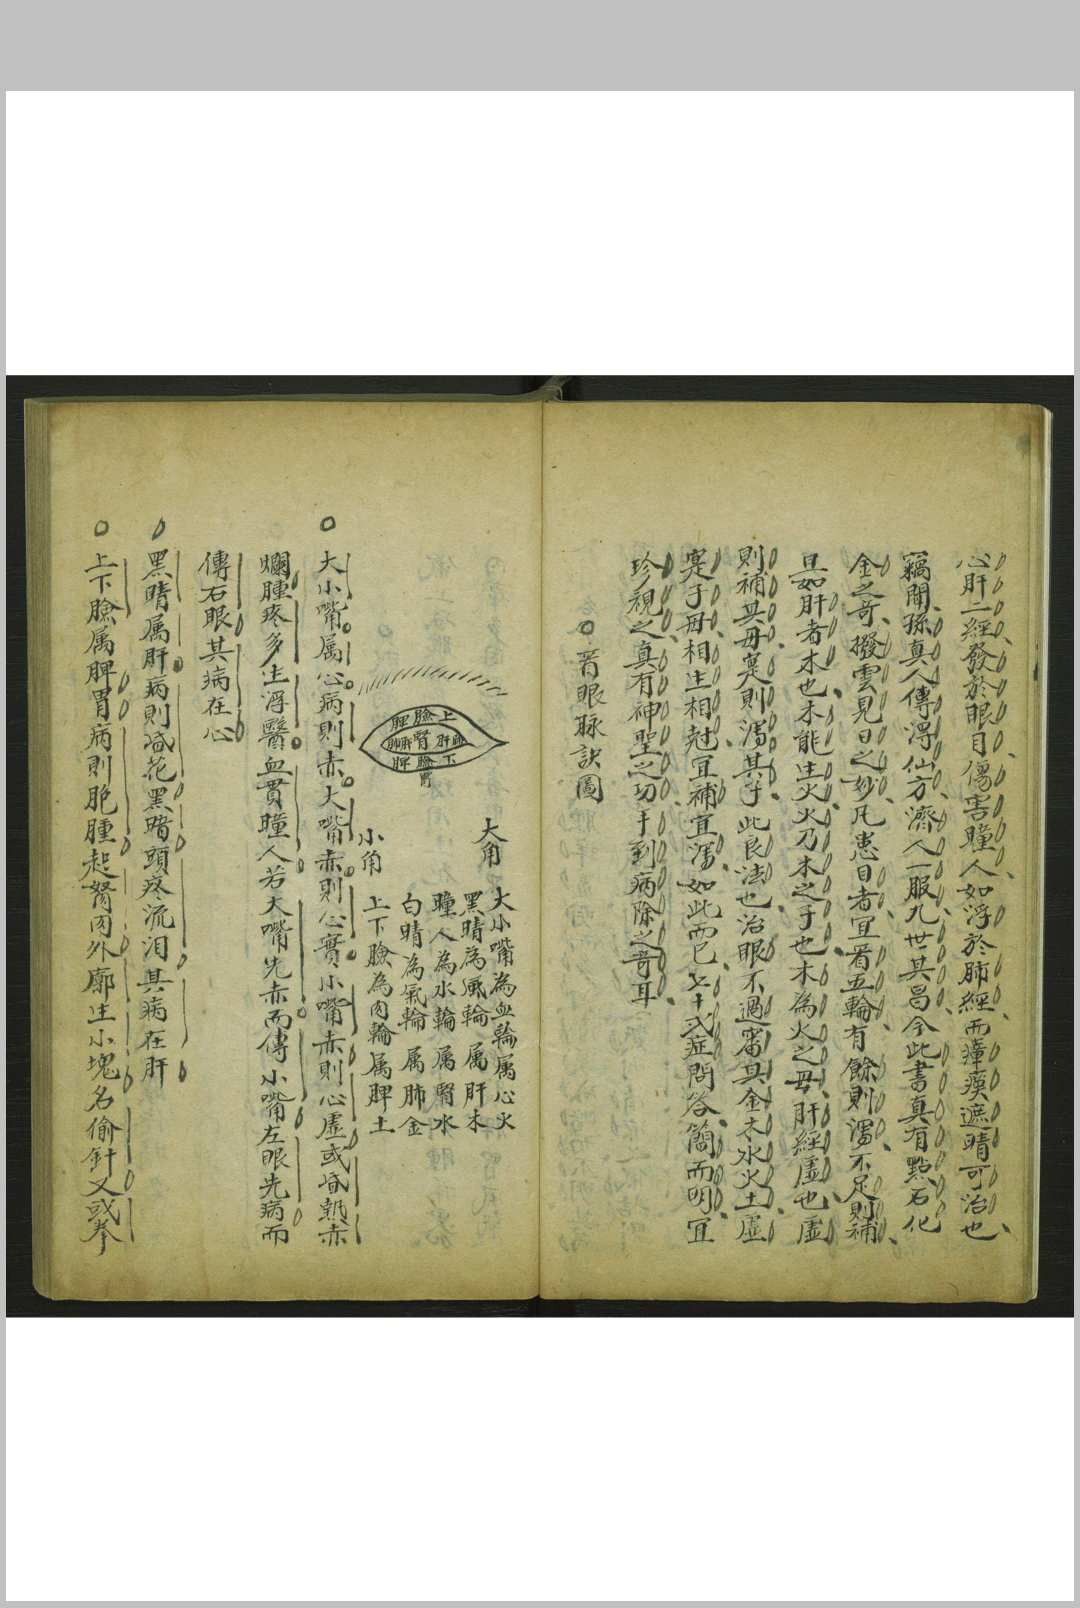 心肝二經發於眼目傷害瞳人如浮於肺經而瘴瘼遮睛可治也
竊聞孫真人傳淂仙方濟人一服九世其昌今此書真有點石化
金之奇撥雲見日之妙凡患目者宜看五輪有餘則瀉不足則補
且如肝者木也木能生火火乃木之子也木為火之母肝經虛也虛
則補其母寔則瀉其子此良法也治眼不過審其金木水火土虛
寔子母相生相尅宜補宜瀉如此而已七十弍症問答簡而明宜
珍視之真有神聖之功手到病除之奇耳
○看眼脉訣圖
大角
小角
上臉脾
肺肝腎
下臉脾胃
大小嘴為血輪属心火
黑睛為風輪属肝木
瞳人為水輪属腎水
白睛為氣輪属肺金
上下臉為肉輪属脾土
○大小嘴属心病則赤大嘴赤則心實小嘴赤則心虛或昏熱赤
爛腫疼多生浮翳血貫瞳人若大嘴先赤而傳小嘴左眼先病而
傳右眼其病在心
○黑睛属肝病則𥇀花黑暗頭疼流泪其病在肝
○上下臉属脾胃病則胞腫起胬肉外廓生小塊名偷針又或拳